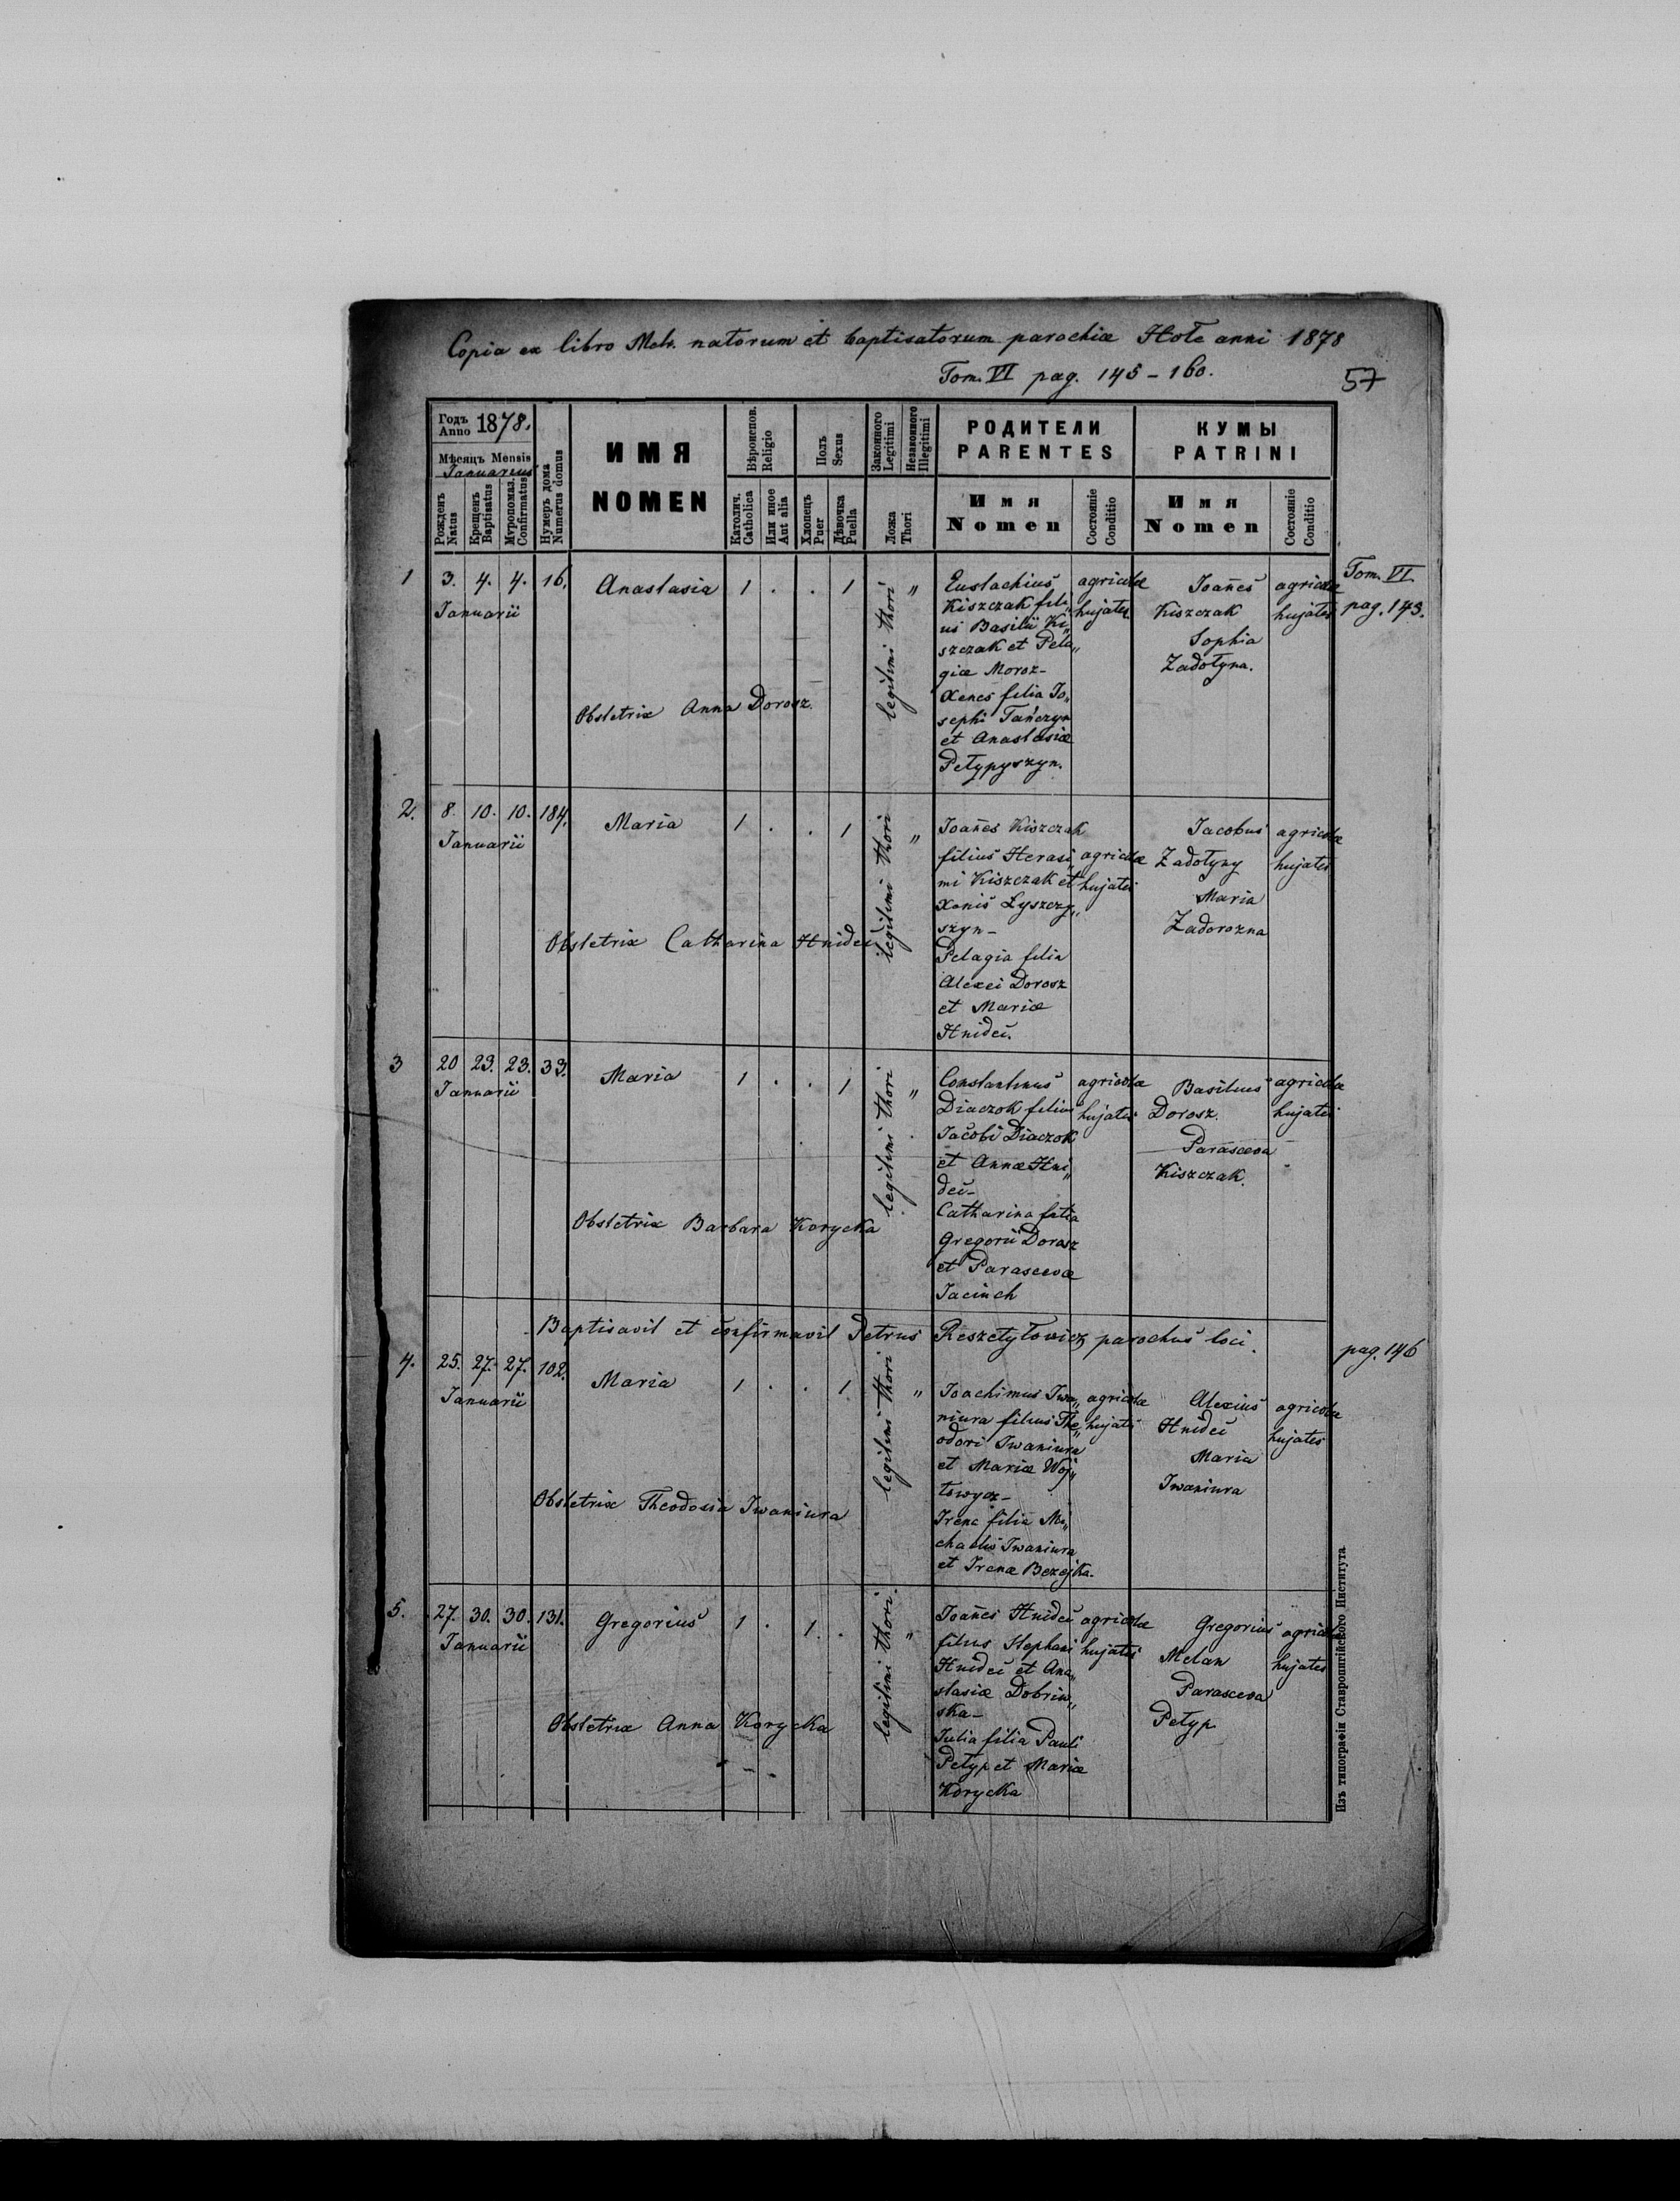 Copia ex libro Metr. natorum et baptisatorum parochiæ Hołe anni 1878
Tom. VI pag. 145 - 160.
57
Годъ Anno 1878.
Мѣсяцъ Mensis
Januarius
Рожденъ Natus
Крещенъ Baptisatus
Мѵропомаз. Confirmatus
Нумеръ дома Numerus domus
ИМЯ
NOMEN
Вѣроиспов. Religio
Католич. Catholica
Или иное Aut alia
Полъ Sexus
Хлопецъ Puer
Дѣвочка Puella
Законного Legitimi
Незаконного Illegitimi
Ложа Thori
РОДИТЕЛИ
PARENTES
Имя
Nomen
Состояніе Conditio
КУМЫ
PATRINI
Имя
Nomen
Состояніе Conditio
1
3. 4. 4. 16.
Januarii
Anastasia
1 . . 1
legitimi thori
"
Eustachius
Kiszczak fili„
us Basilii Ki„
szczak et Pela„
giæ Moroz-
Xenes filia Jo„
sephi Tańczyn
et Anastasiæ
Petypyszyn.
agricolæ
hujates
Joañes
Kiszczak
Sophia
Zadołyna.
agricolæ
hujates
Tom. VI.
pag. 143.
Obstetrix Anna Dorosz.
2.
8. 10. 10. 184.
Januarii
Maria
1 . . 1
legitimi thori
"
Joañes Kiszczak
filius Herasi„
mi Kiszczak et
Xenis Łyszczy„
szyn-
Pelagia filia
Alexei Dorosz
et Mariæ
Hnideć.
agricolæ
hujates
Jacobus
Zadołyny
Maria
Zadorozna
agricolæ
hujates
Obstetrix Catharina Hnideć
3
20 23. 23. 33.
Januarii
Maria
1 . . 1
legitimi thori
"
Constantinus
Diaczok filius
Jacobi Diaczok
et Annæ Hni„
deć-
Catharina filia
Gregorii Dorosz
et Parascevæ
Jacinch
agricolæ
hujates
Basilius
Dorosz.
Parasceva
Kiszczak.
agricolæ
hujates
Obstetrix Barbara Korycka
Baptisavit et confirmavit Petrus Reszetyłowicz parochus loci.
pag. 146
4.
25. 27. 27. 102.
Januarii
Maria
1 . . 1
legitimi thori
"
Joachimus Iwa„
niura filius The„
odori Iwaniura
et Mariæ Woj„
towycz-
Irena filia Mi„
chaelis Iwaniura
et Irenæ Bezejka.
agricolæ
hujates
Alexius
Hnideć
Maria
Iwaniura
agricolæ
hujates
Obstetrix Theodosia Iwaniura
5.
27. 30. 30. 131.
Januarii
Gregorius
1 . 1 .
legitimi thori.
"
Joañes Hnideć
filius Stephani
Hnideć et Ana„
stasiæ Dobriw„
ska-
Julia filia Pauli
Petyp et Mariæ
Korycka
agricolæ
hujates
Gregorius
Melan
Parasceva
Petyp
agricolæ
hujates
Obstetrix Anna Korycka
Изъ типографіи Ставропигійского Института